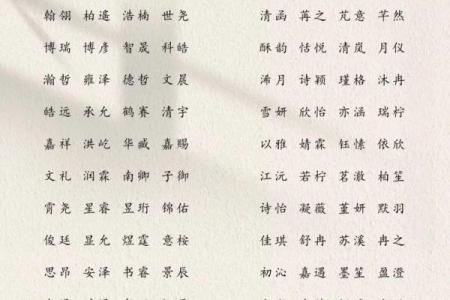 翰翎 柏遥 浩楠 世尧 清函 苒之 芃意 芊然
博瑞 博彦 智晟 科皓 酥韵 恬悦 清岚 月仪
瀚哲 雍泽 德哲 文晨 浠月 诗颖 瑾格 沐冉
皓远 承允 鹤赛 清宇 雪妍 欣怡 亦涵 瑞柠
嘉祥 洪屹 华臧 嘉赐 以雅 婧霖 钰愫 依欣
文礼 润霖 南卿 子卿 江沅 若柠 茗澈 柏笙
霄尧 星睿 昱珩 锦佑 诗怡 凝薇 堇妍 默羽
俊廷 显允 煜霆 意桉 佳琪 舒冉 苏溪 冉之
思昂 安泽 书睿 景辰 初沁 嘉遇 墨笙 盈澄